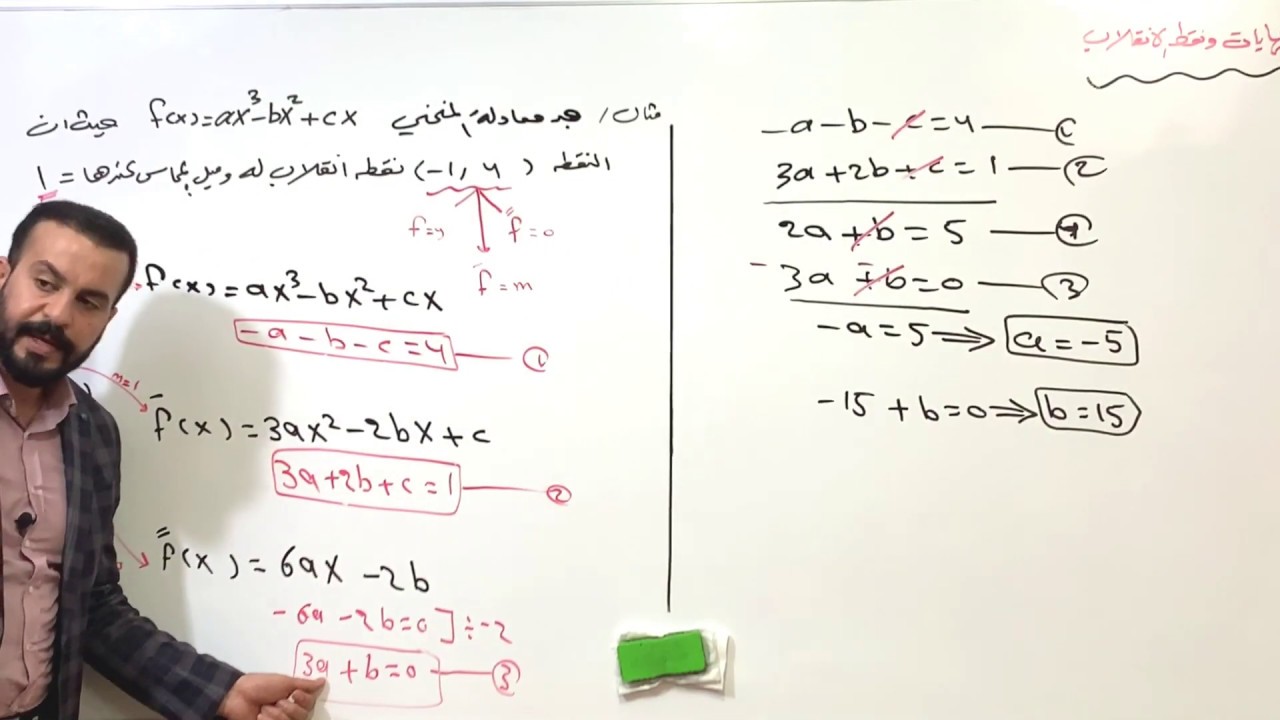 هايات ونقط الانقلاب
مثال/ جد معادلة المنحني f(x)=ax³-bx²+cx حيث ان
النقطه (-1,4) نقطه انقلاب له وميل المماس عندها = 1
f=y f̿=0
f̄=m
f(x)=ax³-bx²+cx
-a-b-c=4 ①
m=1
f̄(x)=3ax²-2bx+c
3a+2b+c=1 ②
f̿(x)=6ax-2b
-6a-2b=0]÷-2
3a+b=0 ③
-a-b-c=4 ①
3a+2b+c=1 ②
2a+b=5 ④
-3a∓b=0 ③
-a=5 ⇒ a=-5
-15+b=0 ⇒ b=15